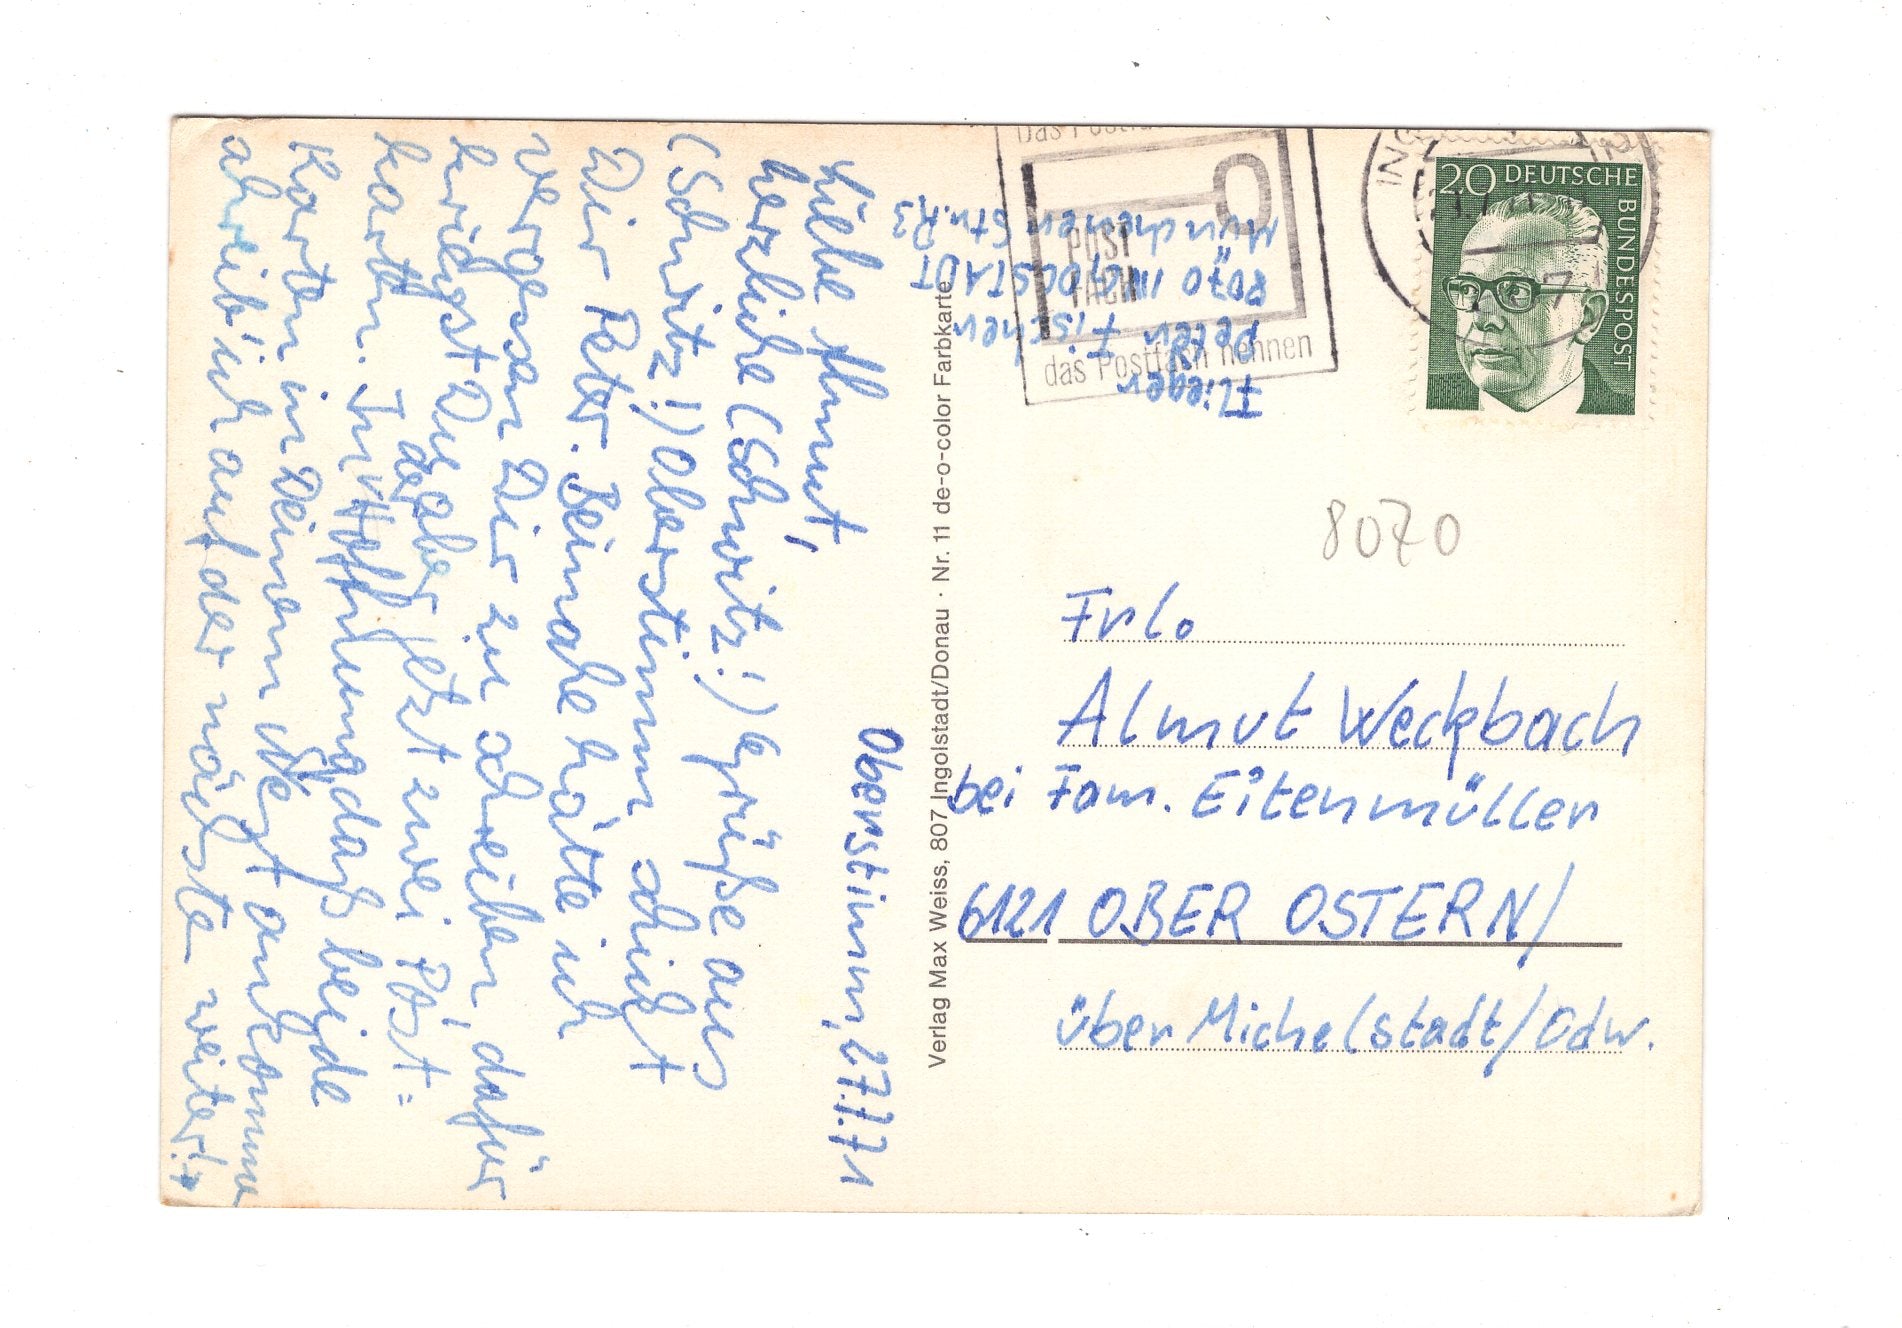 Oberstimm, 27.7.71
Liebe Almut,
herzliche (Schwitz!) Grüße aus
(Schwitz!) Oberstimm schickt
Dir Peter. Beinahe hätte ich
vergessen Dir zu schreiben, dafür
kriegst Du aber jetzt zwei Post=
karten. In der Hoffnung daß beide
Karten in Deinem Weg ankommen
schreib' ich auf der nächsten weiter!→
Verlag Max Weiss, 807 Ingolstadt/Donau · Nr. 11 de-o-color Farbkarte
Flieger
Peter Fischer
8070 INGOLSTADT
Münchener Str. R3
POST
FACH
das Postfach nennen
20 DEUTSCHE
BUNDESPOST
8070
Frl.
Almut Weckbach
bei Fam. Eitenmüller
6121 OBER OSTERN/
über Michelstadt/Odw.